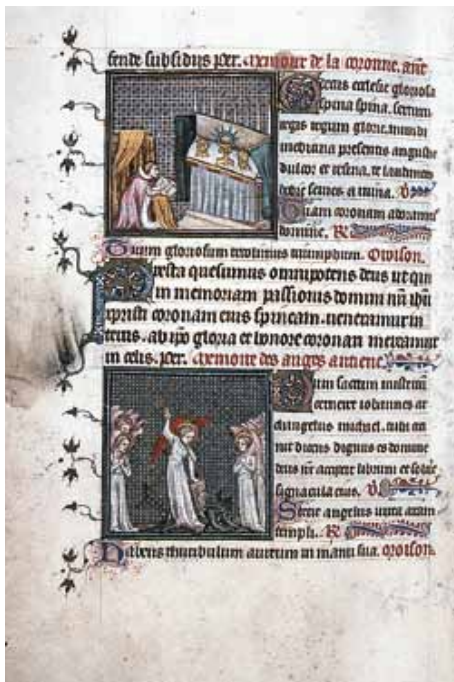 fende subsidiis per. Memoire de la coronne. ane
ecclesie gloriosa
spina spina. sertum
regis regum glorie. mundi
presentis angustie
dulcor et
Quam coronam adoramus
domine. R
Suum gloriosum recolimus triumphum. Orison.
Presta quesumus omnipotens deus ut qui
in memoriam passionis domini nri ihu
xpristi coronam eius spineam. veneramur in
terris. ab ipo gloria et honore coronari mereamur
in celis. per. Memoire des anges antiene.
Dum sacrum misterium
cerneret iohannes ar
changelus michael. tubi ce
nit dicens dignus es domine
deus nr accipere librum et solue
signacula eius. V
Stetit angelus iuxta aram
templi. R
Habens thuribulum aureum in manu sua. oroison.